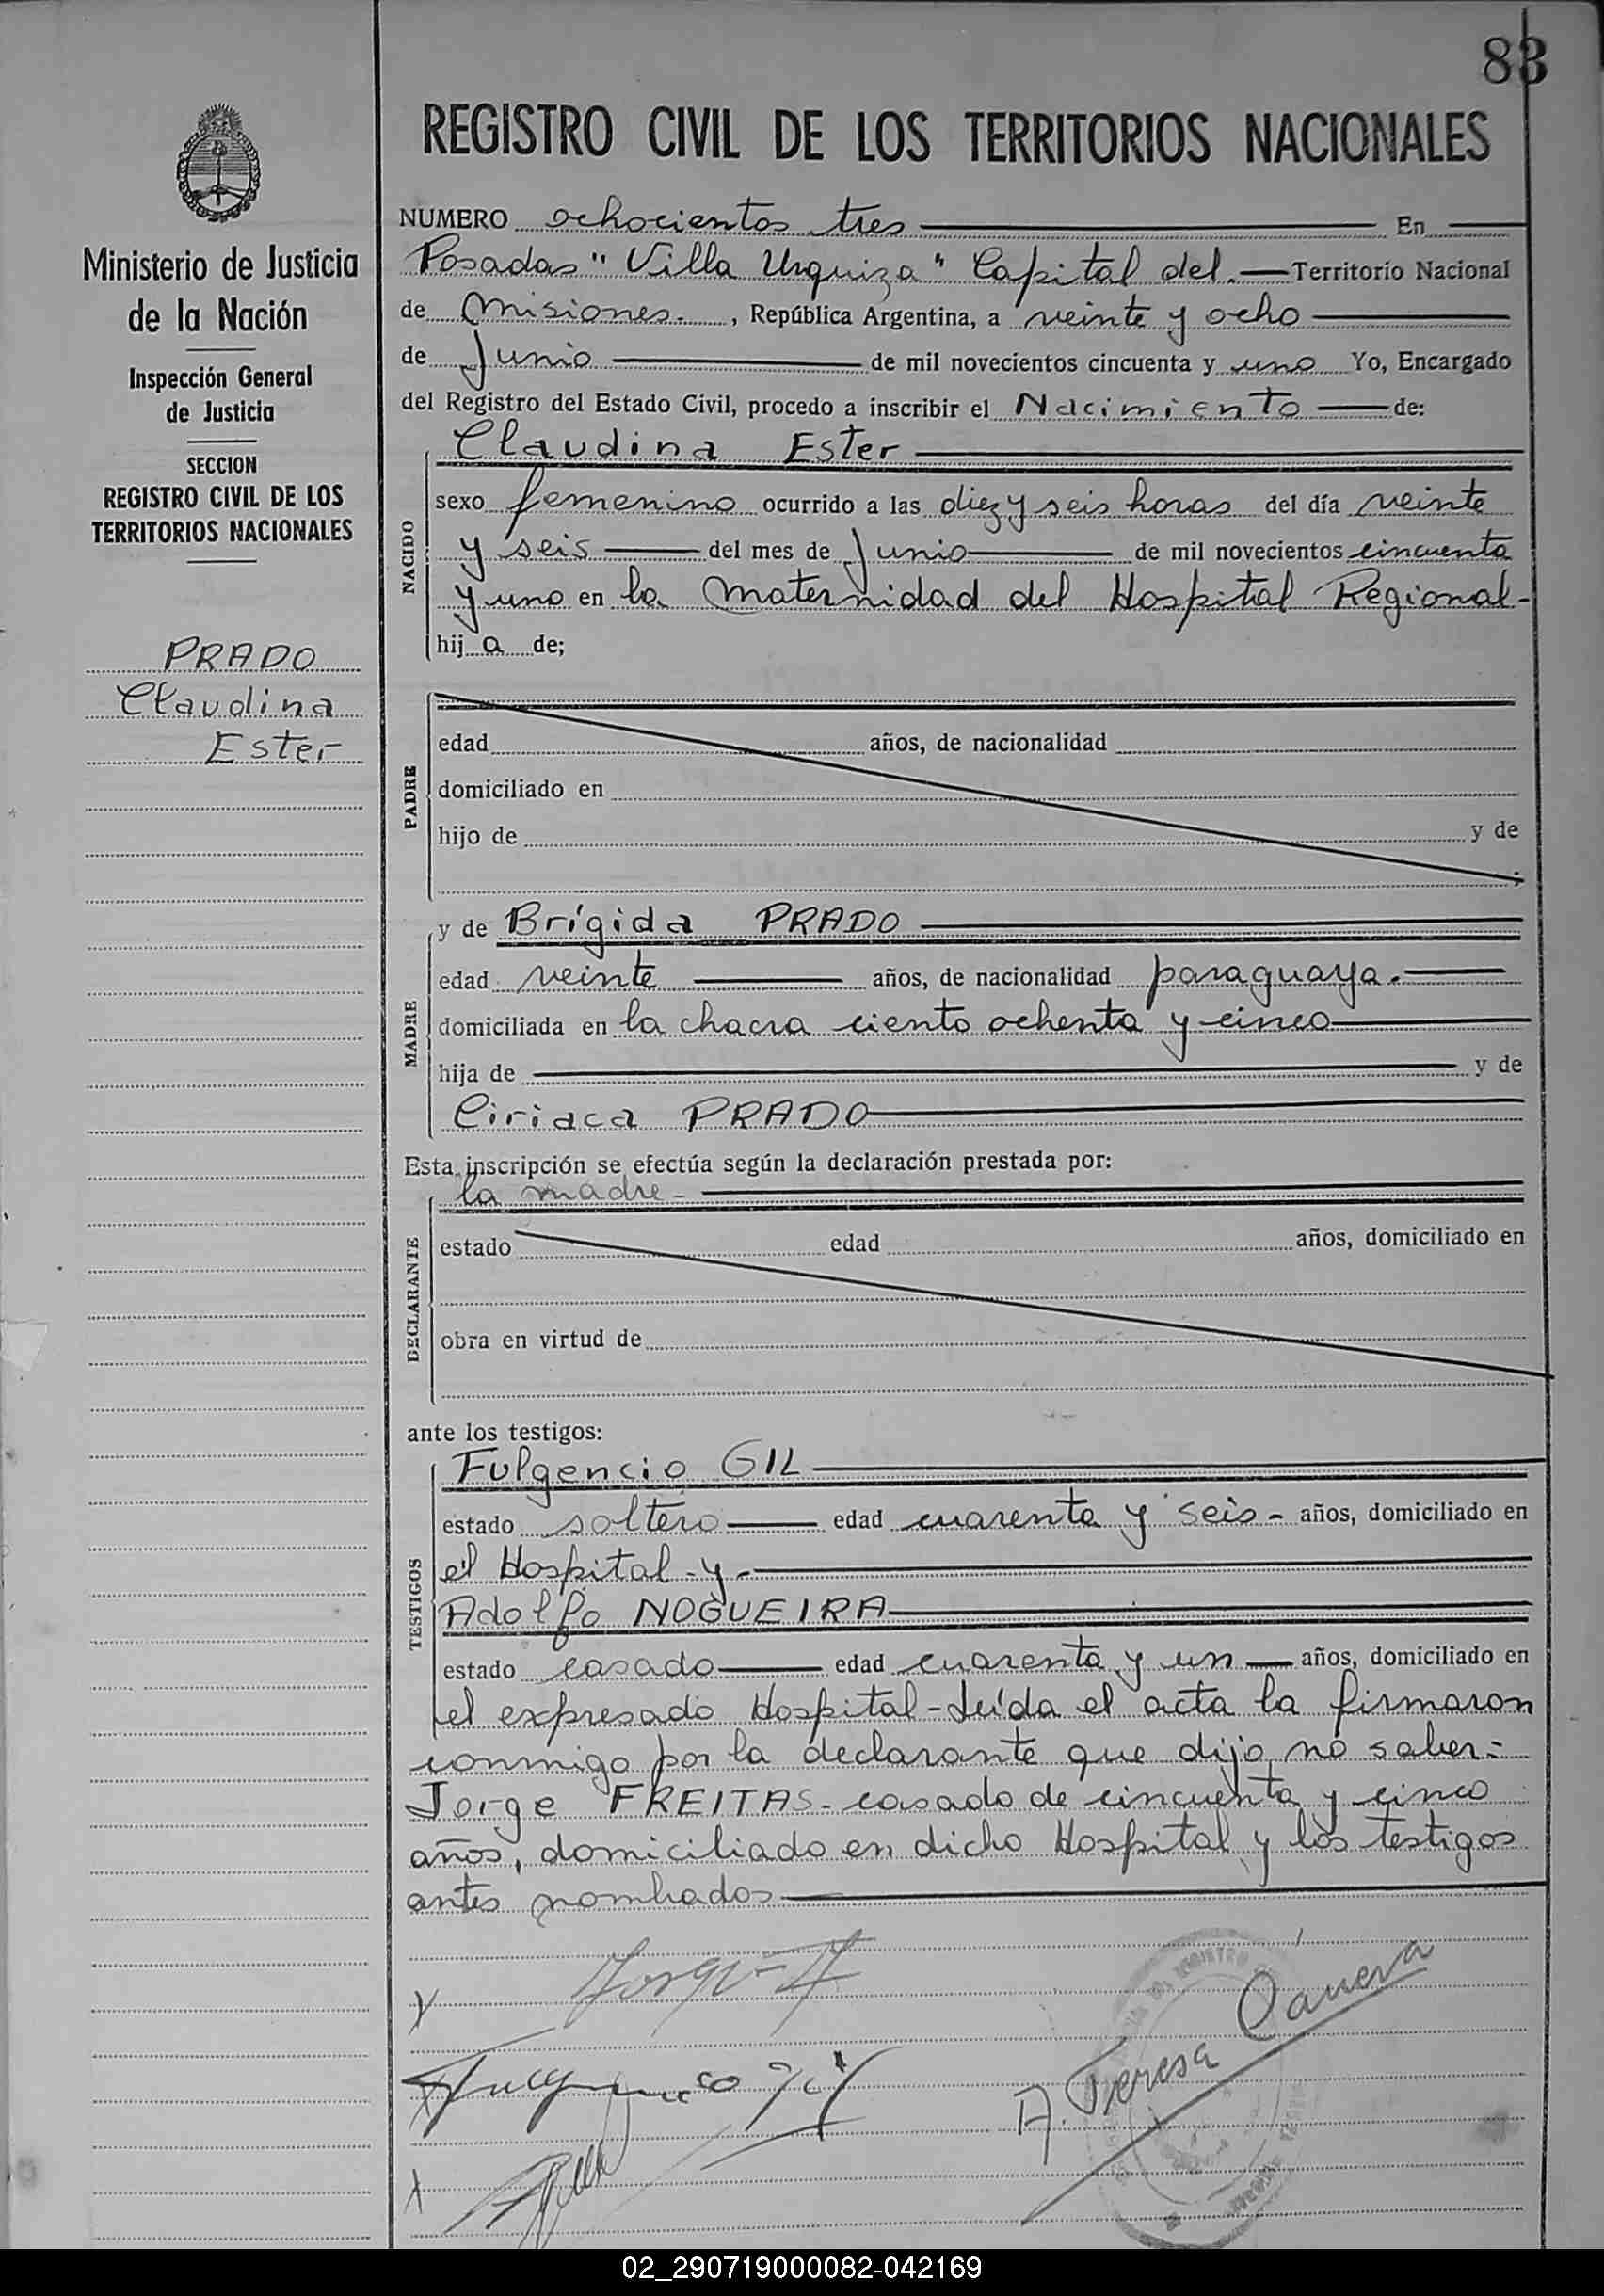 83
REGISTRO CIVIL DE LOS TERRITORIOS NACIONALES
Ministerio de Justicia
de la Nación
Inspección General
de Justicia
SECCION
REGISTRO CIVIL DE LOS
TERRITORIOS NACIONALES
PRADO
Claudina
Ester
NUMERO ochocientos tres En
Posadas "Villa Urquiza" Capital del. Territorio Nacional
de Misiones. , República Argentina, a veinte y ocho
de Junio de mil novecientos cincuenta y uno Yo, Encargado
del Registro del Estado Civil, procedo a inscribir el Nacimiento de:
NACIDO
Claudina Ester
sexo femenino ocurrido a las diez y seis horas del día veinte
y seis del mes de Junio de mil novecientos cincuenta
y uno en la maternidad del Hospital Regional-
hij a de;
PADRE
edad años, de nacionalidad
domiciliado en
hijo de y de
MADRE
y de Brígida PRADO
edad veinte años, de nacionalidad paraguaya.
domiciliada en la chacra ciento ochenta y cinco
hija de y de
Ciriaca PRADO
Esta inscripción se efectúa según la declaración prestada por:
DECLARANTE
la madre-
estado edad años, domiciliado en
obra en virtud de
ante los testigos:
TESTIGOS
Fulgencio GIL
estado soltero edad cuarenta y seis- años, domiciliado en
el Hospital-y-
Adolfo NOGUEIRA
estado casado edad cuarenta y un años, domiciliado en
el expresado Hospital-Leída el acta la firmaron
conmigo por la declarante que dijo no saber-
Jorge FREITAS-casado de cincuenta y cinco
años, domiciliado en dicho Hospital y los testigos
antes nombrados
Jorge F
Fulgencio Gil
A. Teresa Cáneva
02_290719000082-042169